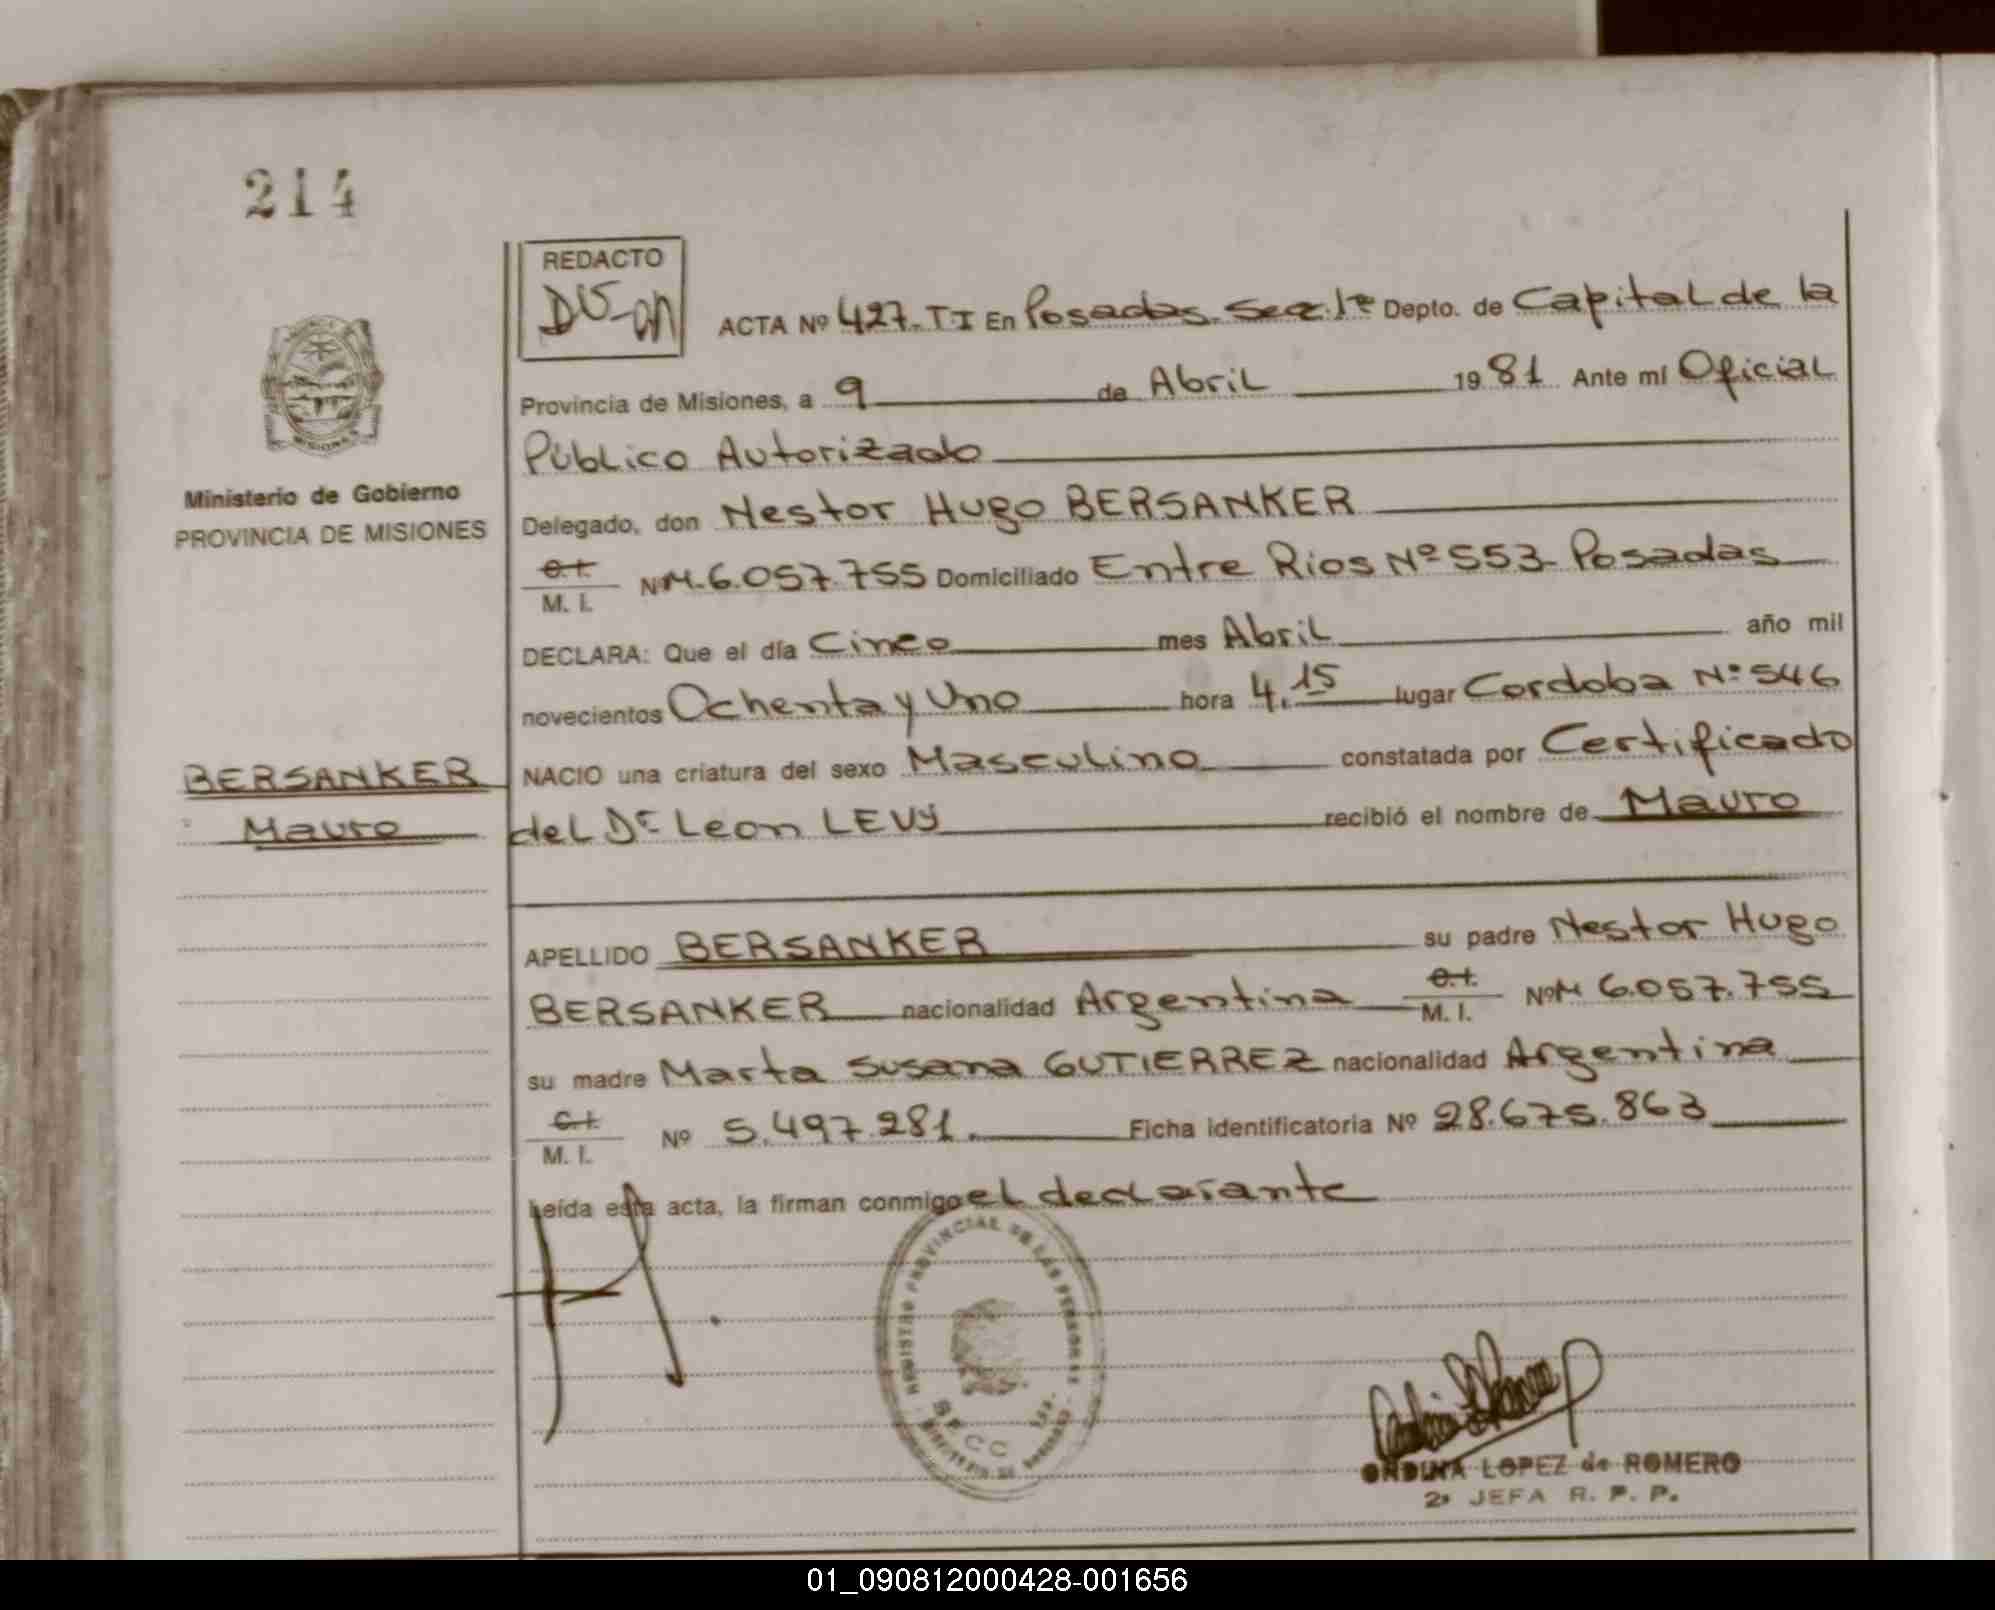 214
REDACTO
ACTA Nº 427. T I En Posadas. Sec. 1ª Depto. de Capital de la
Provincia de Misiones, a 9 de Abril 1981 Ante mí Oficial
Público Autorizado
Ministerio de Gobierno
PROVINCIA DE MISIONES
Delegado, don Nestor Hugo BERSANKER
C.I.
M. I. Nº M. 6.057.755 Domiciliado Entre Rios Nº 553 Posadas
DECLARA: Que el día Cinco mes Abril año mil
novecientos Ochenta y Uno hora 4.15 lugar Cordoba Nº 546
BERSANKER
Mauro
NACIO una criatura del sexo Masculino constatada por Certificado
del Dr Leon LEVY recibió el nombre de Mauro
APELLIDO BERSANKER su padre Nestor Hugo
BERSANKER nacionalidad Argentina C.I. M. I. Nº M 6.057.755
su madre Marta Susana GUTIERREZ nacionalidad Argentina
C.I.
M. I. Nº 5.497.281. Ficha identificatoria Nº 28.675.863
Leída esta acta, la firman conmigo el declarante
REGISTRO PROVINCIAL DE LAS PERSONAS
SECC 1ra.
ONDINA LOPEZ de ROMERO
2ª JEFA R. P. P.
01_090812000428-001656